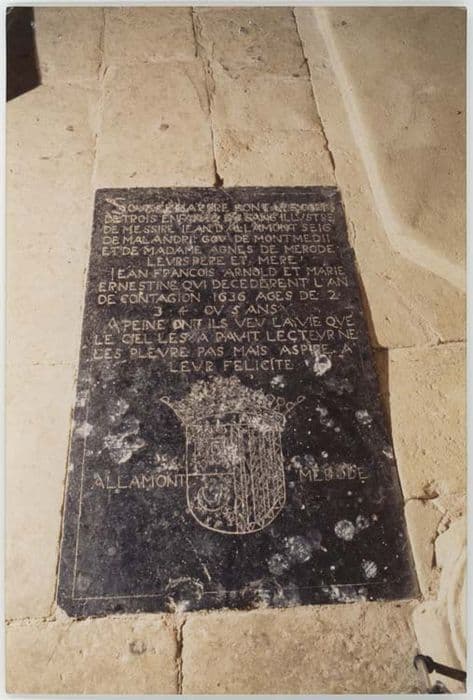 SOUS CE MARBRE SONT LES CORPS
DE TROIS ENFANTS DU SANG ILLUSTRE
DE MESSIRE IEAN D'ALLAMONT SEIG
DE MALANDRI GOV DE MONTMEDII
ET DE MADAME AGNES DE MERODE
LEURS PERE ET MERE
IEAN FRANCOIS ARNOLD ET MARIE
ERNESTINE QVI DECEDERENT L'AN
DE CONTAGION 1636 AGES DE 2
3 4 OV 5 ANS
A PEINE ONT ILS VEV LA VIE QVE
LE CIEL LES A RAVIT LECTEVR NE
LES PLEVRE PAS MAIS ASPIRE A
LEVR FELICITE
ALLAMONT MERODE